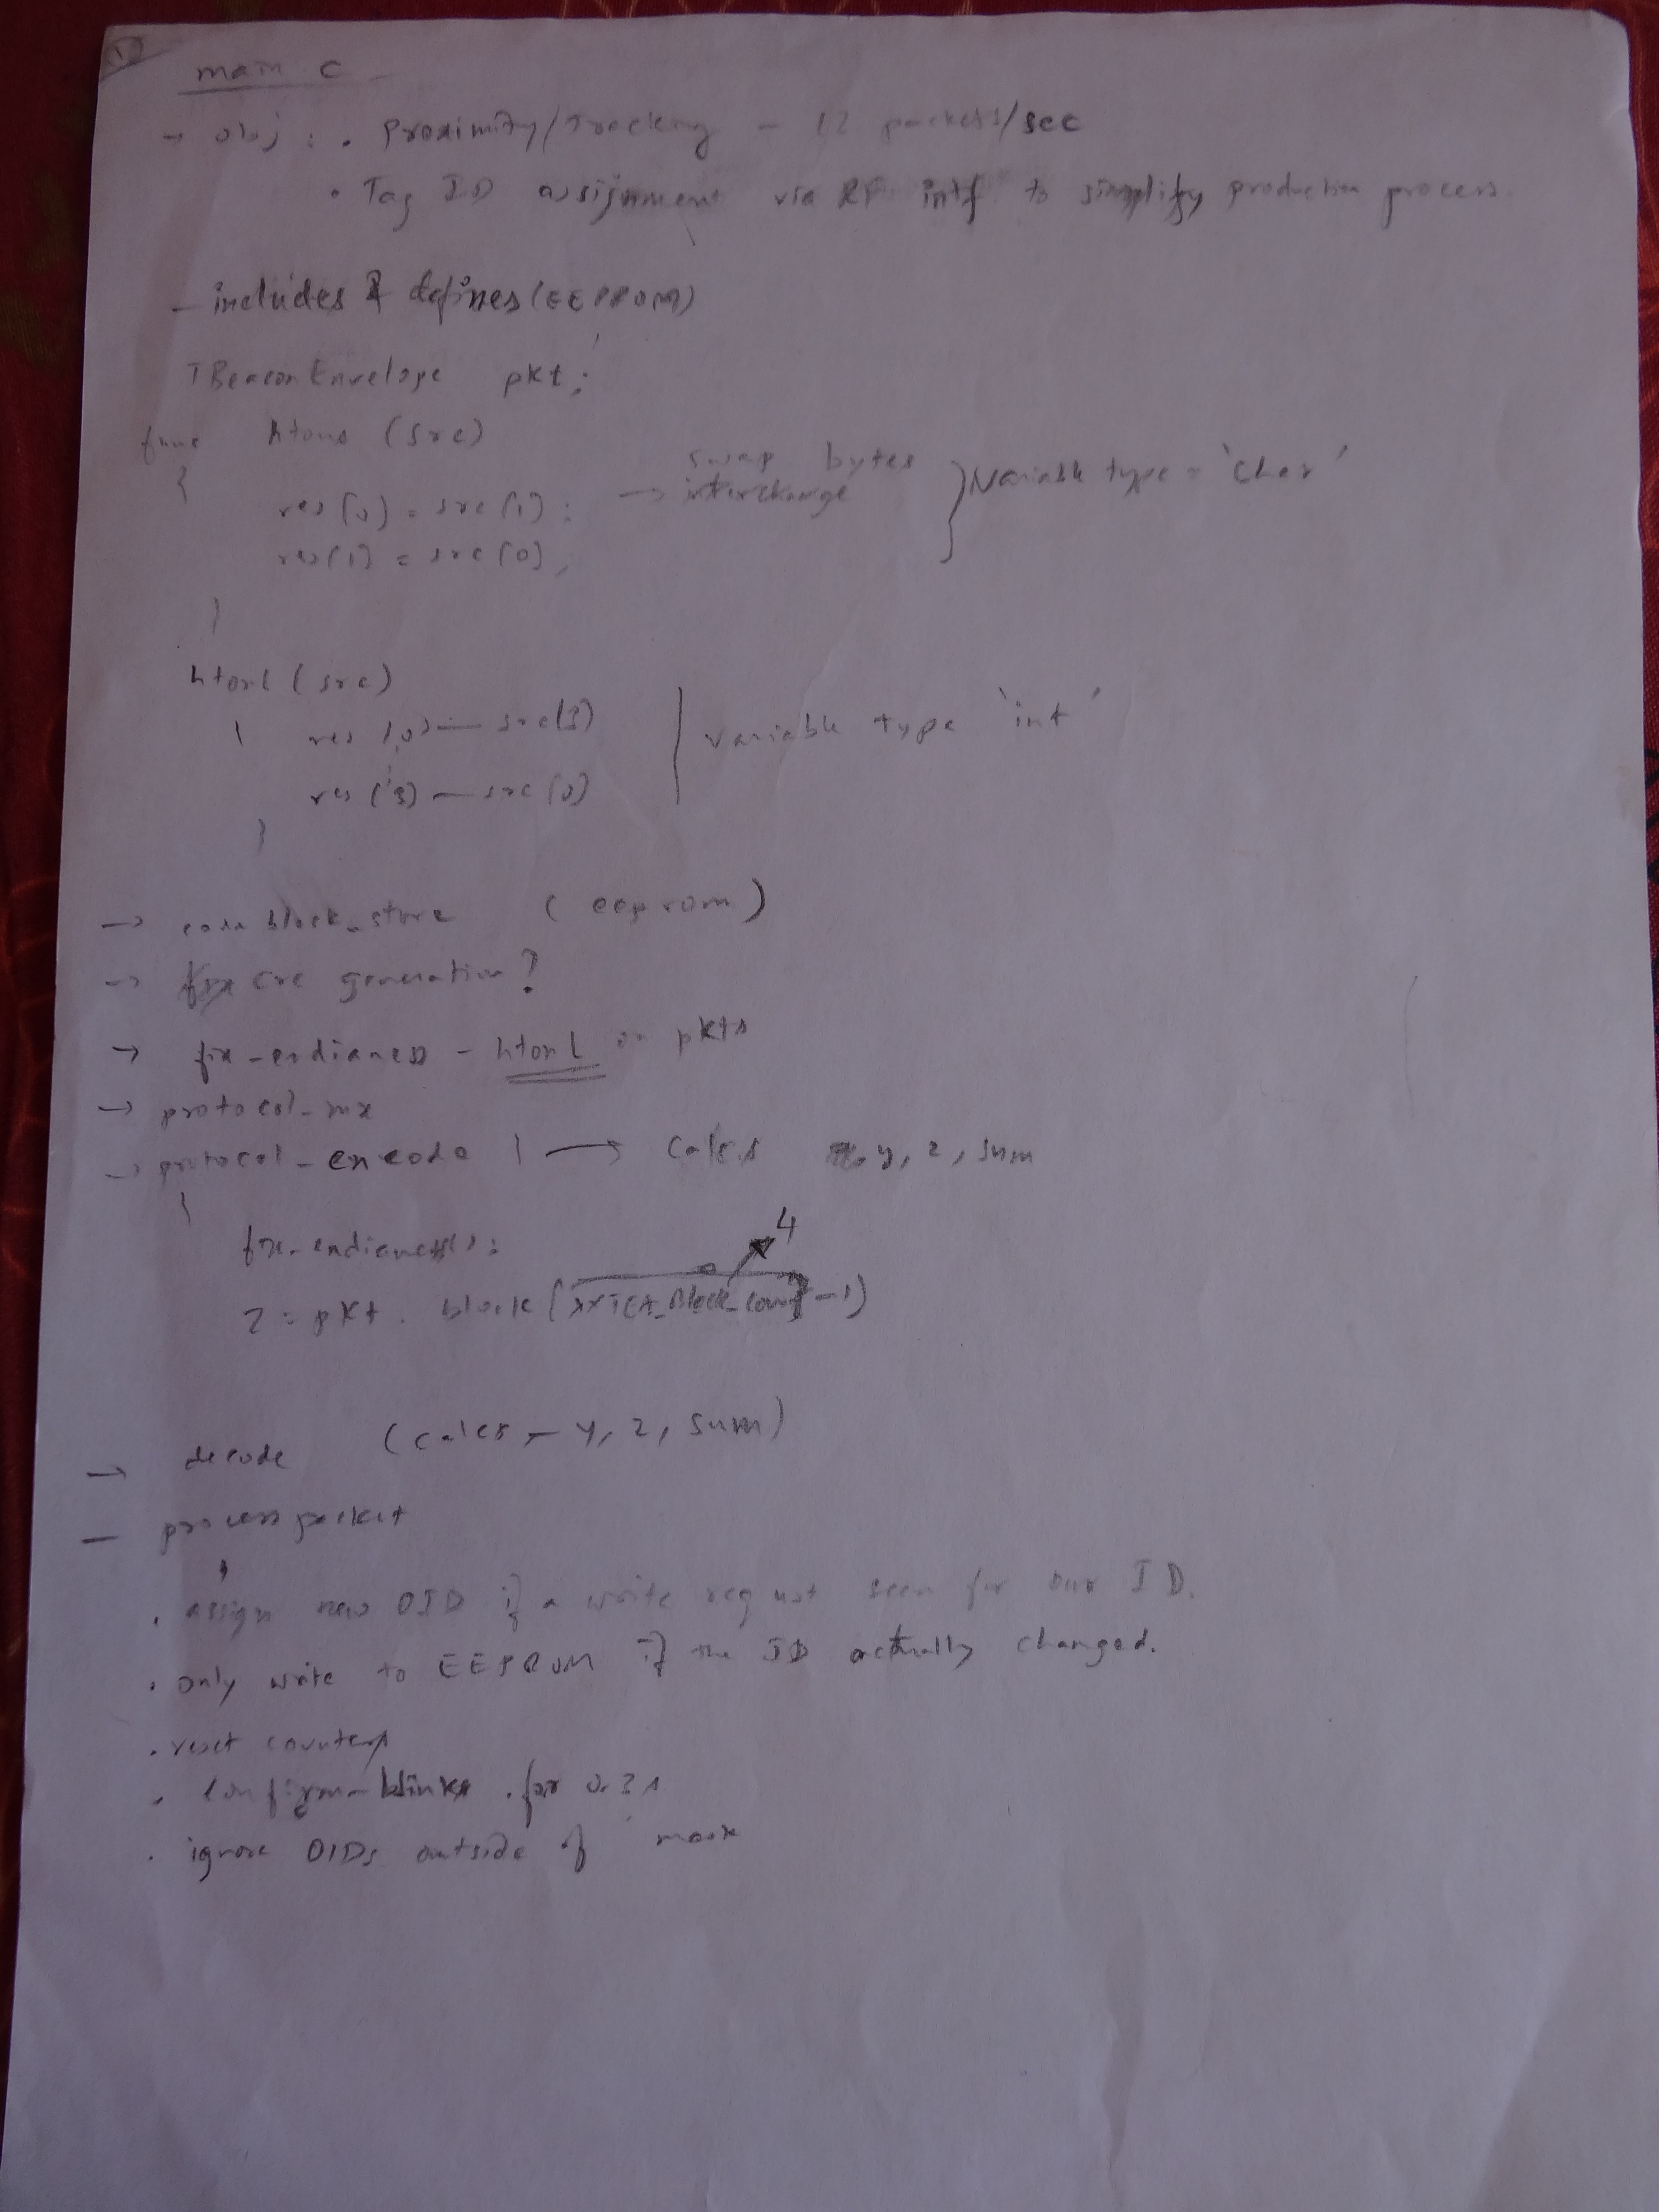 1
main c
→ obj : . Proximity/Tracking - 12 packets/sec
. Tag ID assignment via RF intf to simplify production process.
- includes & defines (EEPROM)
TBeaconEnvelope pkt;
func htons (src)
{
res[0] = src[1];
res[1] = src[0];
→ swap bytes interchange
} variable type = 'char'
}
htonl (src)
{ res[0] — src[3]
res[3] — src[0]
| variable type 'int'
}
→ block_store (eeprom)
→ crc generation?
→ fix-endianess - htonl on pkts
→ protocol-
→ protocol-encode | → calcs y, z, sum
{
fix-endianess():
z = pkt. block [XXTEA_Block_Count - 1]
4
→ decode (calcs - y, z, sum)
- process packet
. assign new OID if a write req not seen for our ID.
. only write to EEPROM if the ID actually changed.
. reset counters
. confirm-blinks . for 0.2s
. ignore OIDs outside of mask